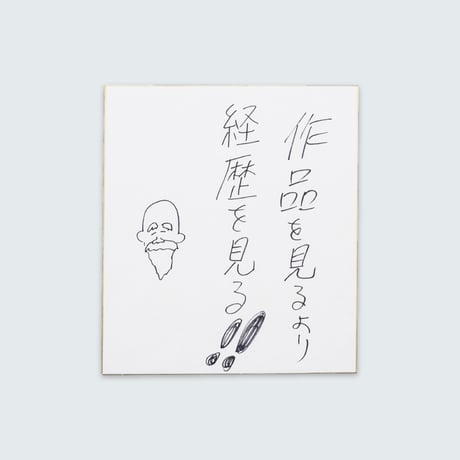 作品を見るより
経歴を見る!!